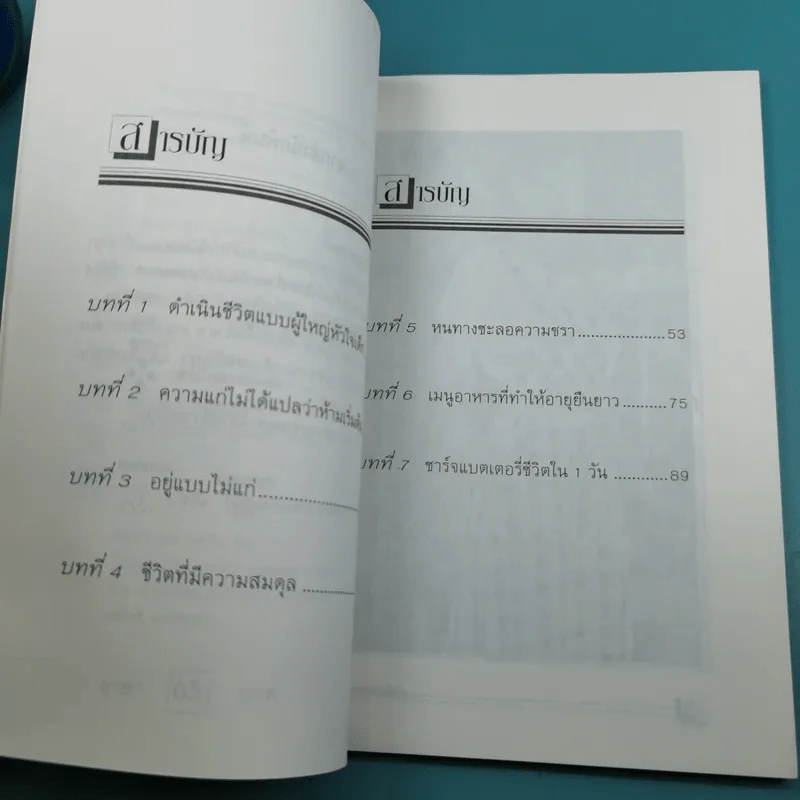 สารบัญ
บทที่ 1 ดำเนินชีวิตแบบผู้ใหญ่หัวใจเด็ก
บทที่ 2 ความแก่ไม่ได้แปลว่าห้ามเริ่มต้น
บทที่ 3 อยู่แบบไม่แก่..............
บทที่ 4 ชีวิตที่มีความสมดุล..........
สารบัญ
บทที่ 5 หนทางชะลอความชรา....................53
บทที่ 6 เมนูอาหารที่ทำให้อายุยืนยาว..........75
บทที่ 7 ชาร์จแบตเตอรี่ชีวิตใน 1 วัน ............89